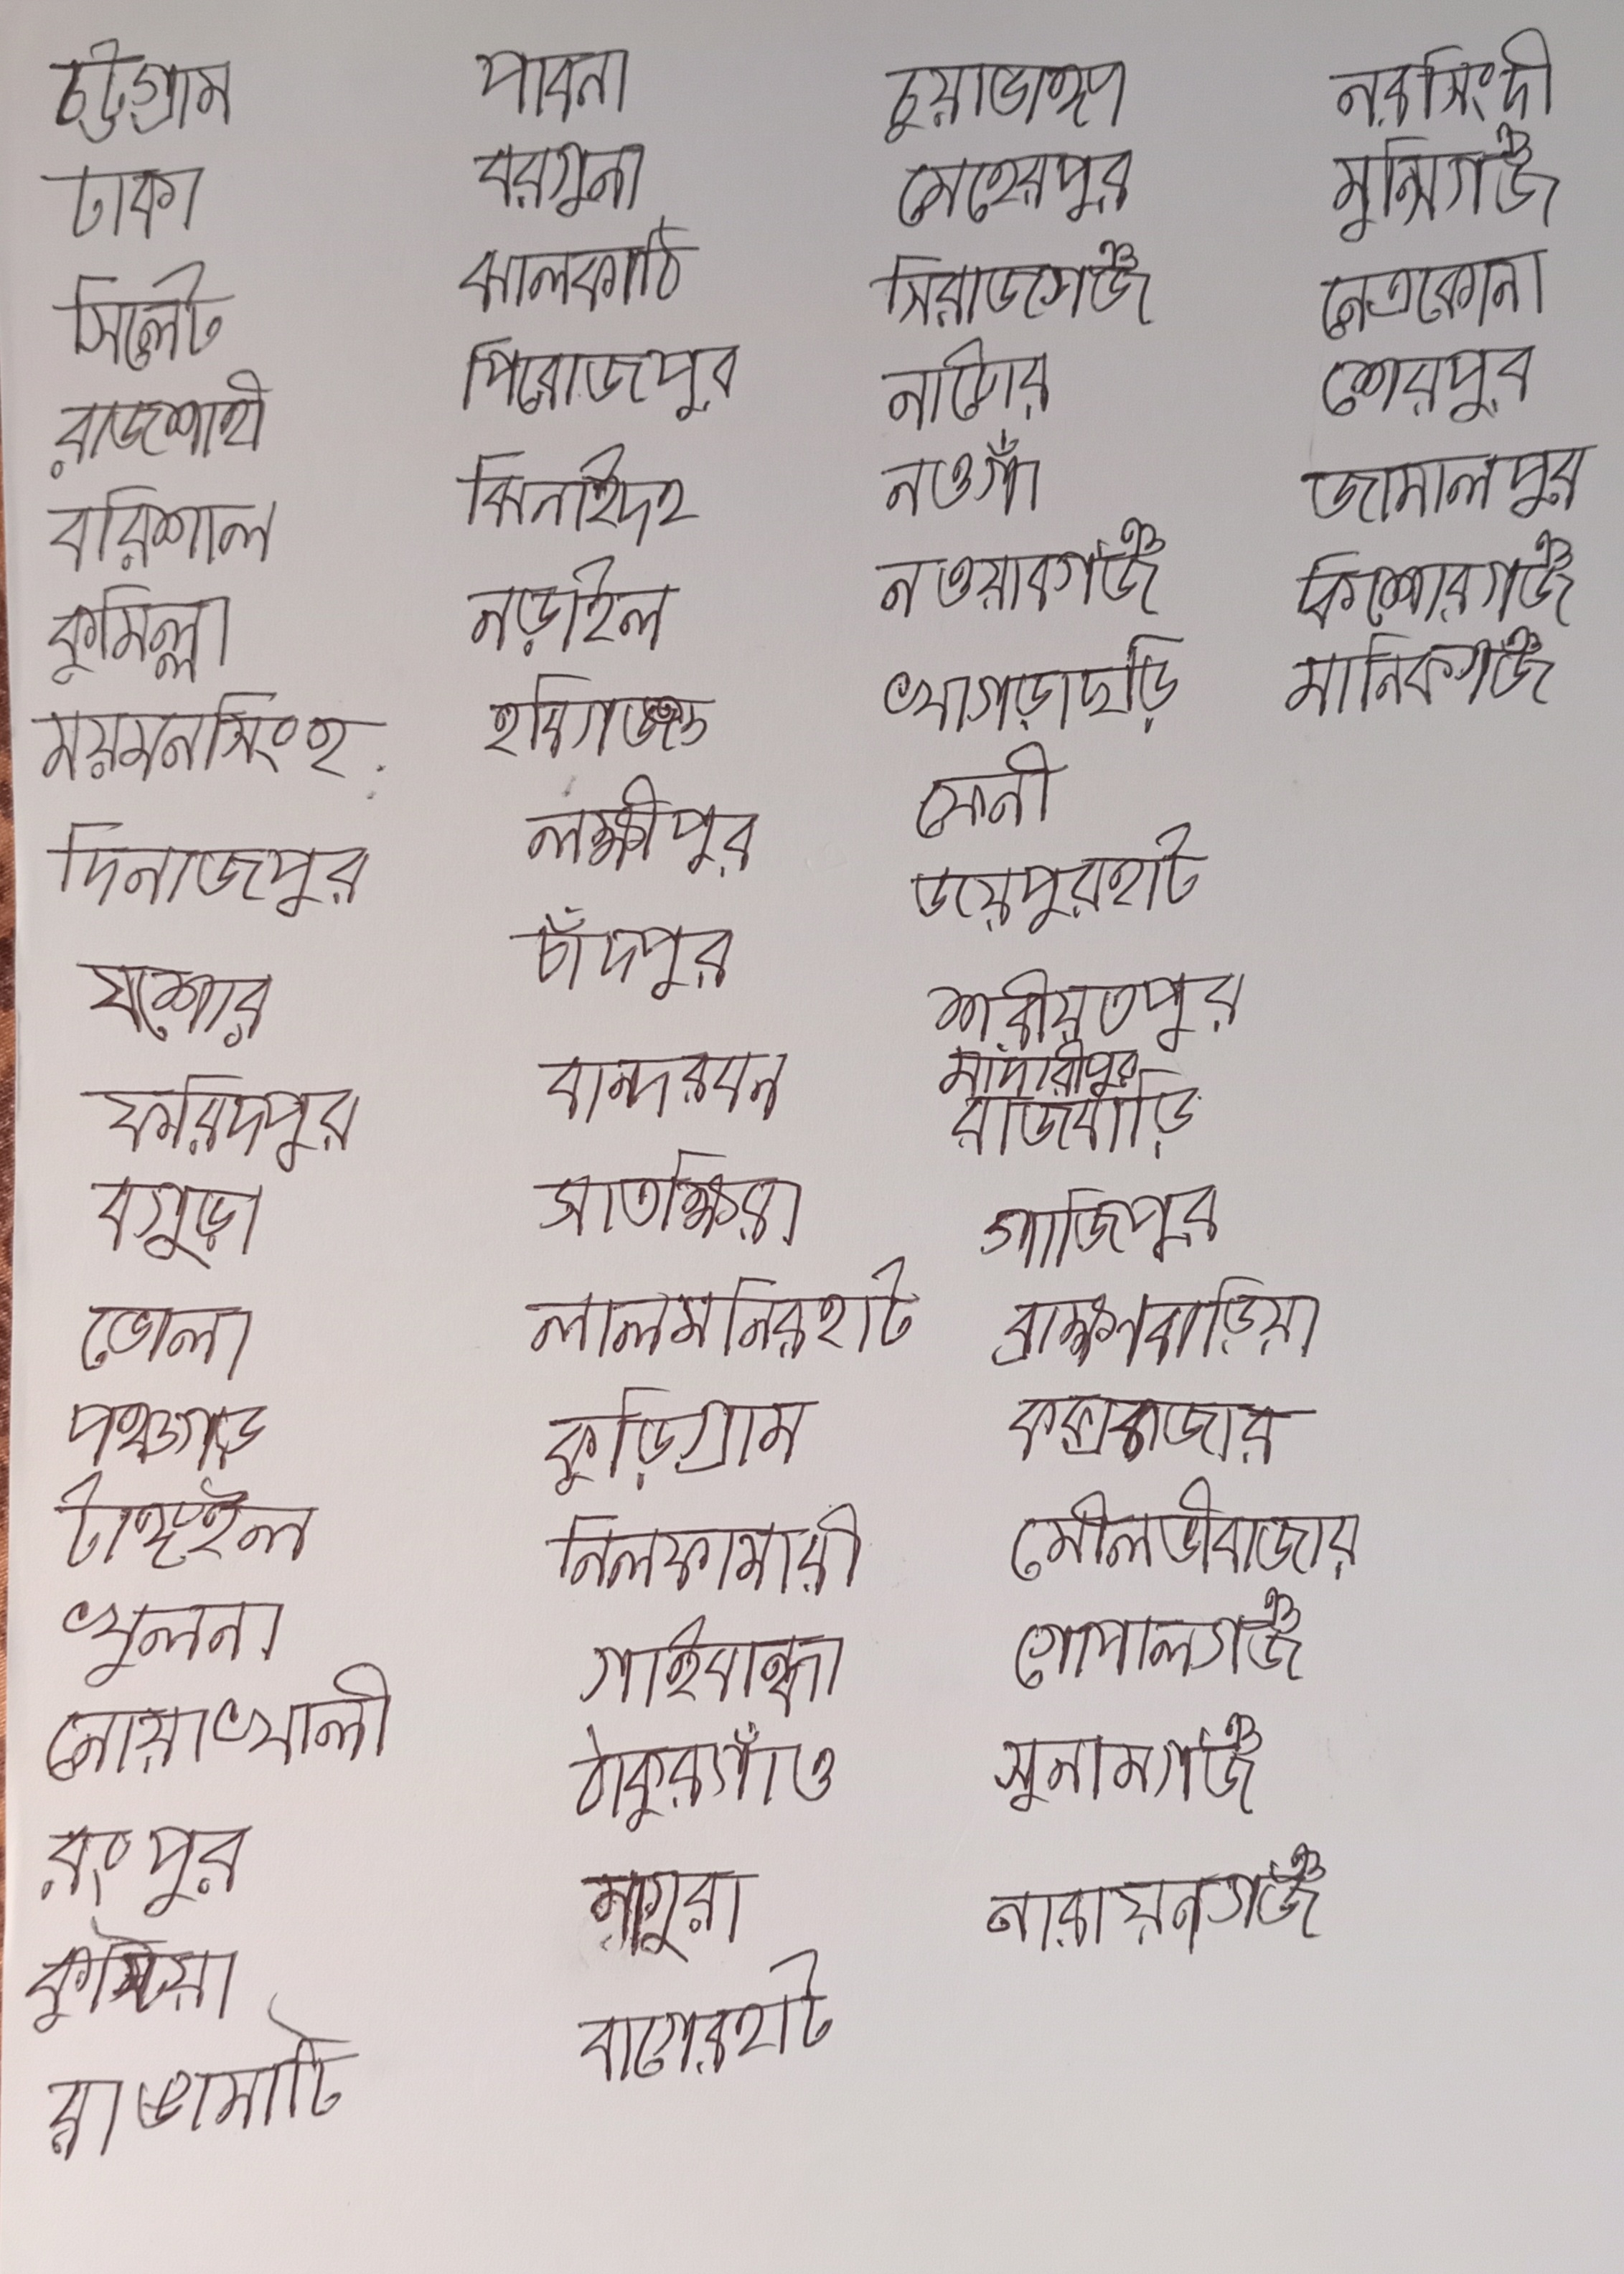 চট্টগ্রাম
ঢাকা
সিলেট
রাজশাহী
বরিশাল
কুমিল্লা
ময়মনসিংহ
দিনাজপুর
যশোর
ফরিদপুর
বগুড়া
ভোলা
পঞ্চগড়
টাঙ্গাইল
খুলনা
নোয়াখালী
রংপুর
কুষ্টিয়া
রাঙামাটি
পাবনা
বরগুনা
ঝালকাঠি
পিরোজপুর
ঝিনাইদহ
নড়াইল
হবিগঞ্জ
লক্ষীপুর
চাঁদপুর
বান্দরবন
সাতক্ষিরা
লালমনিরহাট
কুড়িগ্রাম
নিলফামারী
গাইবান্ধা
ঠাকুরগাঁও
মাগুরা
বাগেরহাট
চুয়াডাঙ্গা
মেহেরপুর
সিরাজগঞ্জ
নাটোর
নওগাঁ
নওয়াবগঞ্জ
খাগড়াছড়ি
ফেনী
জয়পুরহাট
শরীয়তপুর
মাদারীপুর
রাজবাড়ি
গাজিপুর
ব্রাহ্মণবাড়িয়া
কক্সবাজার
মৌলভীবাজার
গোপালগঞ্জ
সুনামগঞ্জ
নারায়নগঞ্জ
নরসিংদী
মুন্সিগঞ্জ
নেত্রকোনা
শেরপুর
জামালপুর
কিশোরগঞ্জ
মানিকগঞ্জ